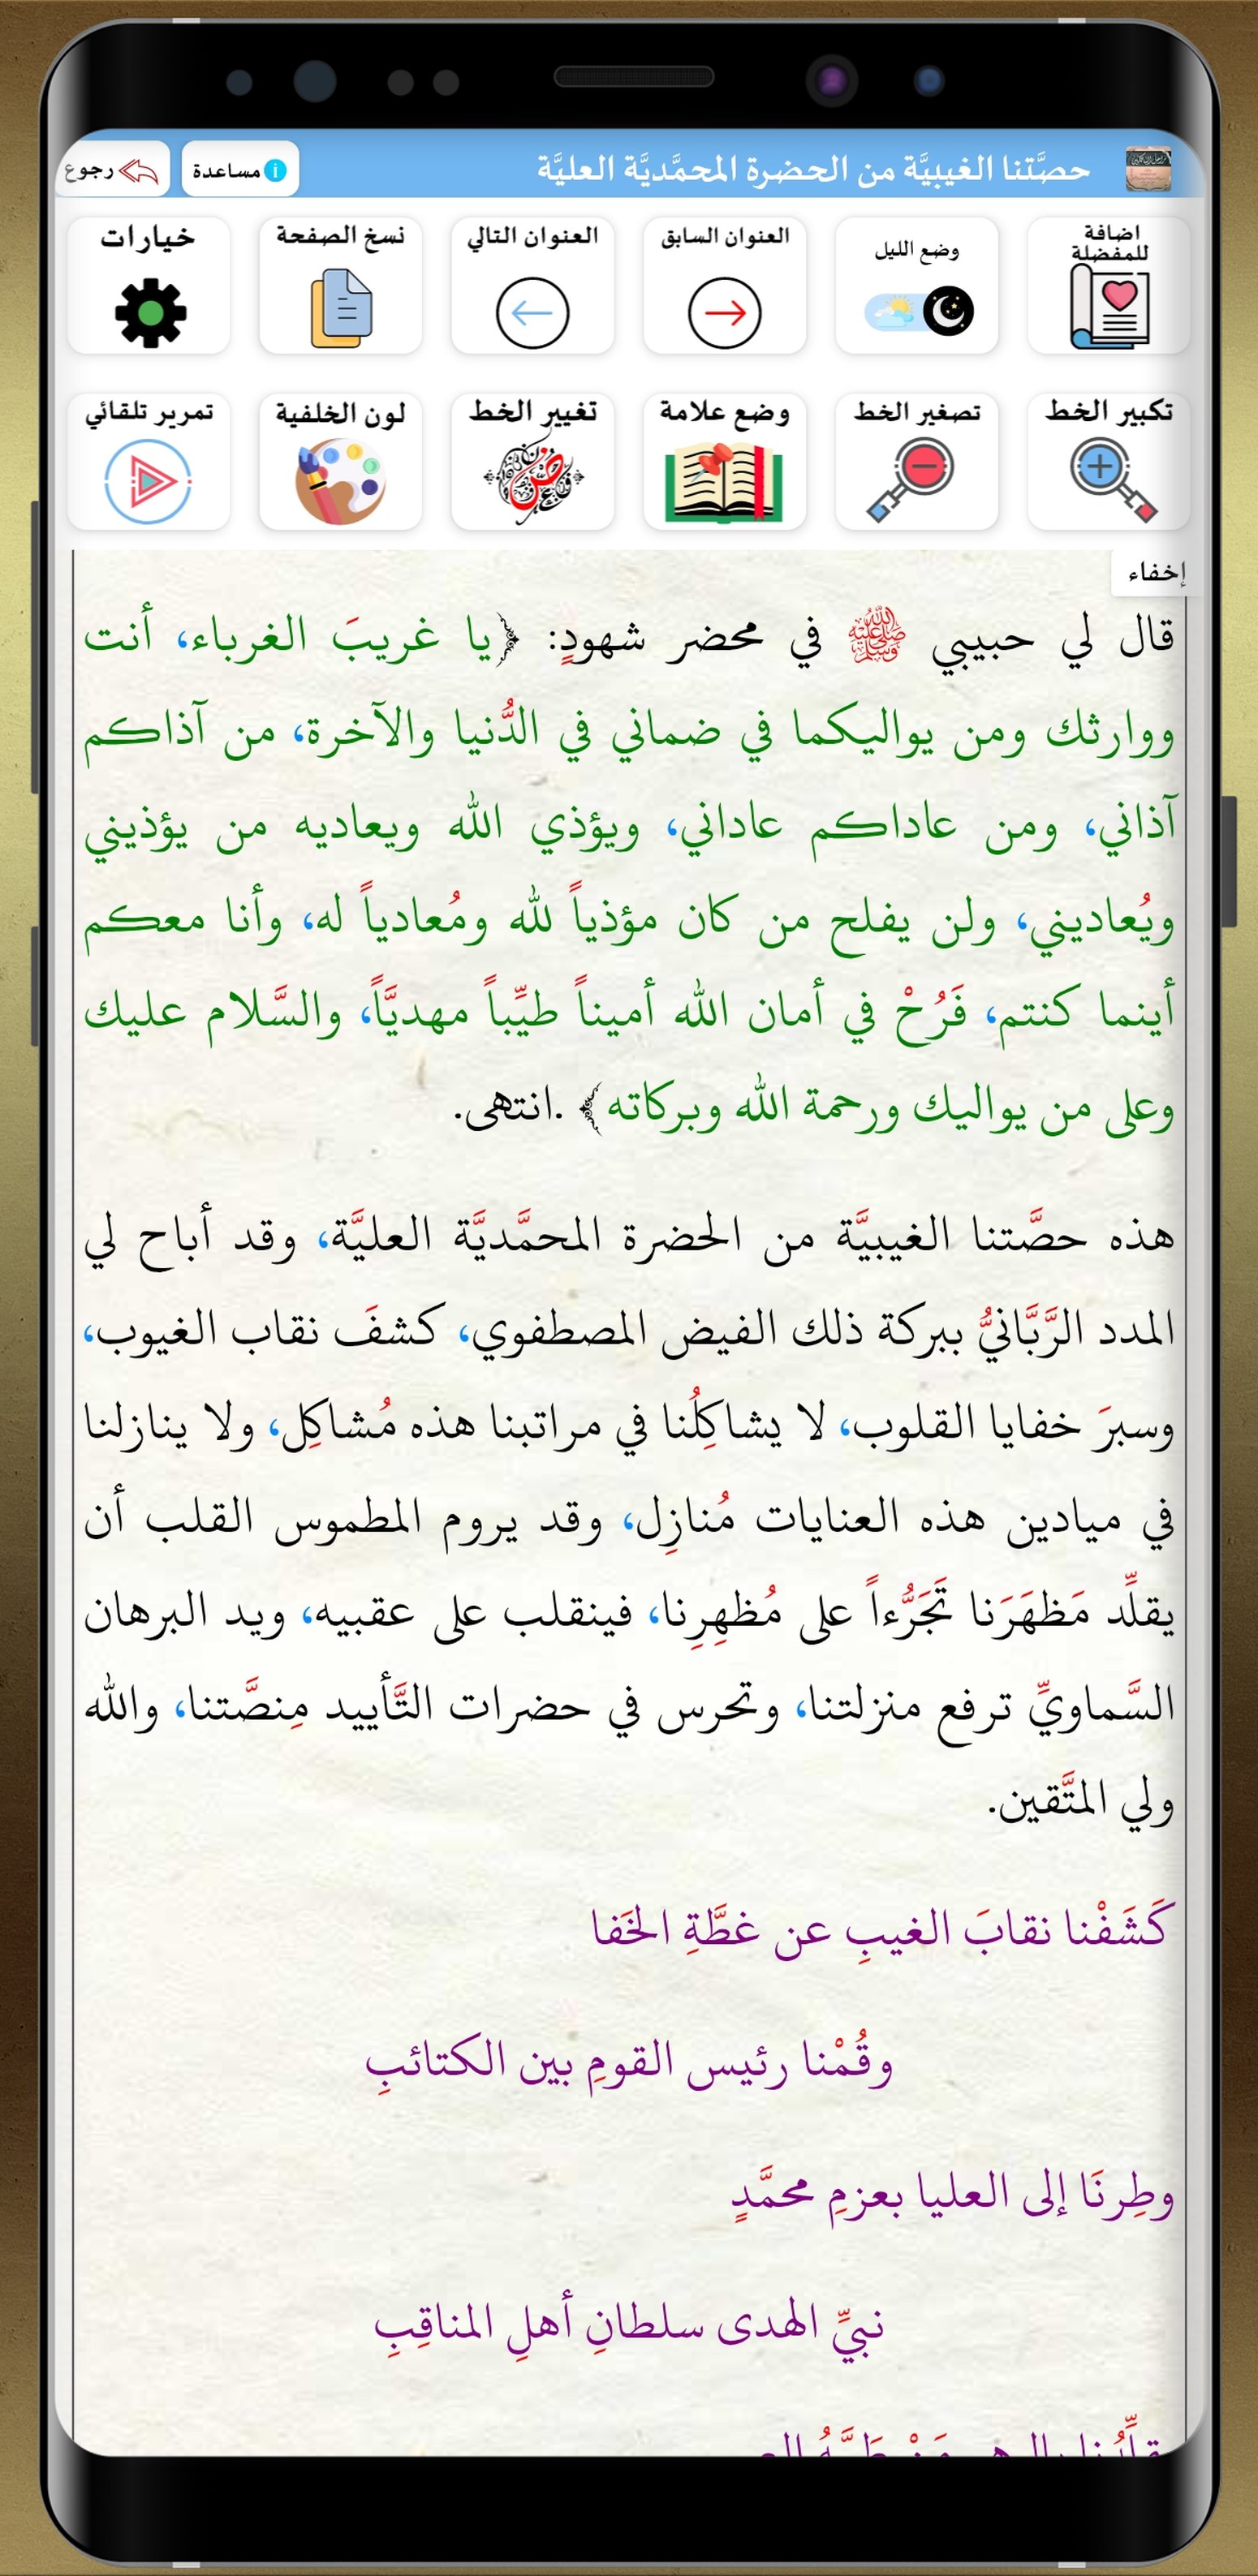 حصَّتنا الغيبيَّة من الحضرة المحمَّديَّة العليَّة
مساعدة
رجوع
اضافة
للمفضلة
وضع الليل
العنوان السابق
العنوان التالي
نسخ الصفحة
خيارات
تكبير الخط
تصغير الخط
وضع علامة
تغيير الخط
لون الخلفية
تمرير تلقائي
إخفاء
قال لي حبيبي ﷺ في محضر شهودٍ: ﴿يا غريبَ الغرباء، أنت
ووارثك ومن يواليكما في ضماني في الدُّنيا والآخرة، من آذاكم
آذاني، ومن عاداكم عاداني، ويؤذي الله ويعاديه من يؤذيني
ويُعاديني، ولن يفلح من كان مؤذياً لله ومُعادياً له، وأنا معكم
أينما كنتم، فَرُحْ في أمان الله أميناً طيِّباً مهديَّاً، والسَّلام عليك
وعلى من يواليك ورحمة الله وبركاته﴾ .انتهى.
هذه حصَّتنا الغيبيَّة من الحضرة المحمَّديَّة العليَّة، وقد أباح لي
المدد الرَّبَّانيُّ ببركة ذلك الفيض المصطفوي، كشفَ نقاب الغيوب،
وسبرَ خفايا القلوب، لا يشاكِلُنا في مراتبنا هذه مُشاكِل، ولا ينازلنا
في ميادين هذه العنايات مُنازِل، وقد يروم المطموس القلب أن
يقلِّد مَظهَرَنا تَجَرُّءاً على مُظهِرِنا، فينقلب على عقبيه، ويد البرهان
السَّماويِّ ترفع منزلتنا، وتحرس في حضرات التَّأييد مِنصَّتنا، والله
ولي المتَّقين.
كَشَفْنا نقابَ الغيبِ عن غطَّةِ الخَفا
وقُمْنا رئيس القومِ بين الكتائبِ
وطِرنَا إلى العليا بعزمِ محمَّدٍ
نبيِّ الهدى سلطانِ أهلِ المناقِبِ